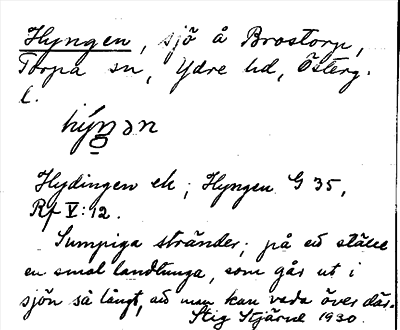 Hyngen, sjö å Brostorp,
Torpa sn, Ydre hd, Österg.
l.
hýŋən
Hydingen ek; Hyngen G 35,
Rf V:12.
Sumpiga stränder; på ett ställe
en smal landtunga, som går ut i
sjön så långt, att man kan vada över där.
Stig Stjärne 1930.